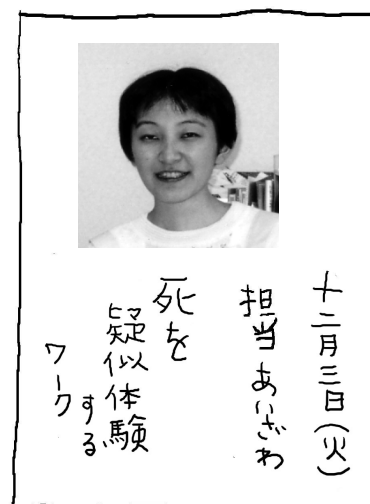 十二月三日(火)
担当あいざわ
死を
疑似体験
する
ワーク